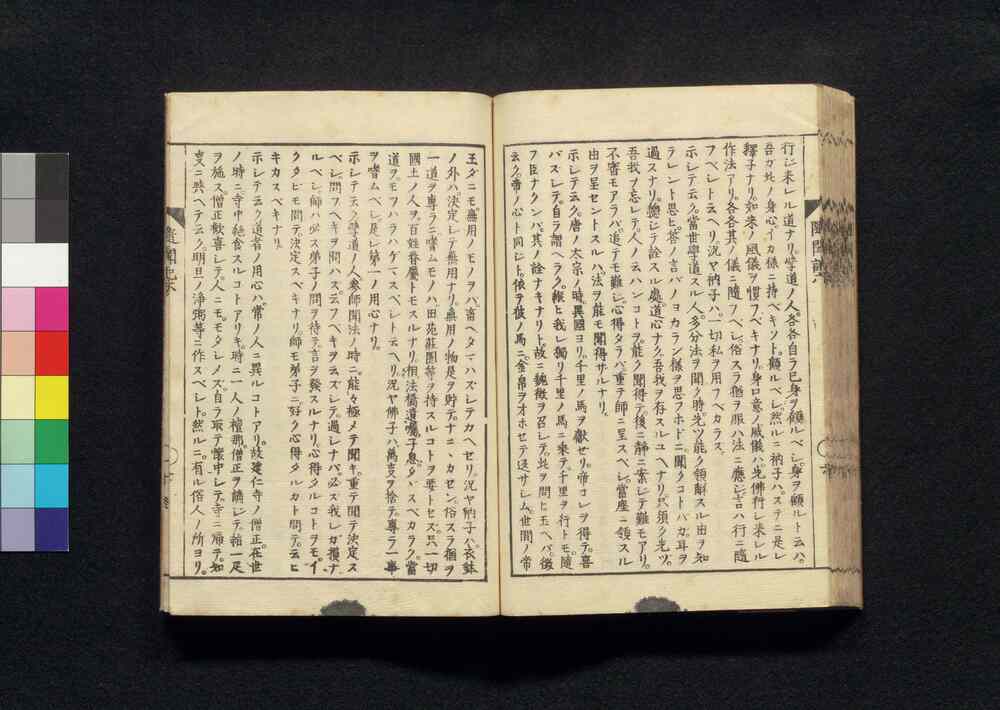 行シ來レル道ナリ。學道ノ人。各各自ラ己身ヲ顧ルベシ。身ヲ顧ルト云ハ。
吾ガ此ノ身心イカ樣ニ持ベキゾト。顧ルベシ。然ルニ衲子ハ。ステニ是レ
釋子ナリ。如來ノ風儀ヲ慣フベキナリ。身口意ノ威儀ハ先佛行シ來レル
作法アリ。各各其ノ儀ニ隨フベシ。俗スラ猶ヲ服ハ法ニ應シ。言ハ行ニ隨
フベシト云ヘリ。況ヤ衲子ハ。一切私ヲ用フベカラス。
示シテ云ク。當世學道スル人。多分法ヲ聞ク時。先ツ能ク領解スル由ヲ知
ラレント思ヒ。答ノ言バノヨカラン樣ヲ思フホドニ。聞クコトバガ。耳ヲ
過スナリ。總シテ詮スル處。道心ナク。吾我ヲ存スルユヘナリ。只須ク先ツ。
吾我ヲ忘レテ。人ノ云ハンコトヲ。能ク聞得テ。後ニ靜ニ案シテ。難モアリ。
不審モアラバ。追テモ難シ。心得タラバ。重テ師ニ呈スベシ。當座ニ領スル
由ヲ呈セントスルハ。法ヲ能モ聞得サルナリ。
示シテ云ク。唐ノ太宗ノ時。異國ヨリ。千里ノ馬ヲ獻セリ。帝コレヲ得テ。喜
バズシテ。自ラ謂ヘラク。縱ヒ我レ獨リ千里ノ馬ニ乘テ。千里ヲ行トモ。隨
フ臣ナクンバ。其ノ詮ナキナリト。故ニ魏徵ヲ召シテ。此ヲ問ヒ玉ヘバ。徵
云ク。帝ノ心ト同シト。依テ彼ノ馬ニ。金帛ヲオホセテ返サレム。世間ノ帝
王ダニモ。無用ノモノヲバ。畜ヘタマハズシテカヘセリ。況ヤ衲子ハ。衣鉢
ノ外ハ。決定シテ無用ナリ。無用ノ物是ヲ貯テ。ナニヽカセン。俗スラ猶ヲ
一道ヲ專ラニ嗜ムモノハ。田苑莊園等ヲ持スルコトヲ要トセズ。只一切
國土ノ人ヲ百姓眷屬トモスルナリ。相法橋遺囑子息ダニスベカラク。當
道ヲモツハラハゲマスベシト云ヘリ。況ヤ佛子ハ。萬事ヲ捨テ。專ラ一事
ヲ嗜ムベシ。是レ第一ノ用心ナリ。
示シテ云ク。學道ノ人。參師聞法ノ時ニ。能々極メテ聞キ。重テ聞テ決定ス
ベシ。問フベキヲ問ハズ。云フベキヲ云ズシテ過シナバ。必ズ我レガ損ナ
ルベシ。師ハ必ス弟子ノ問ヲ待テ。言ヲ發スルナリ。心得タルコトヲモ。イ
クタビモ問テ。決定スベキナリ。師モ弟子ニ。好ク心得タルカト問テ。云ヒ
キカスベキナリ。
示シテ云ク。道者ノ用心ハ。常ノ人ニ異ルコトアリ。故建仁寺ノ僧正。在世
ノ時ニ。寺中絶食スルコトアリキ。時ニ一人ノ檀那。僧正ヲ請シテ。絹一疋
ヲ施ス。僧正歡喜シテ。人ニモモタシメズ。自ラ取テ懷中シテ。寺ニ歸テ。知
事ニ與ヘテ云ク。明旦ノ淨粥等ニ作スベシト。然ルニ。有ル俗人ノ所ヨリ。